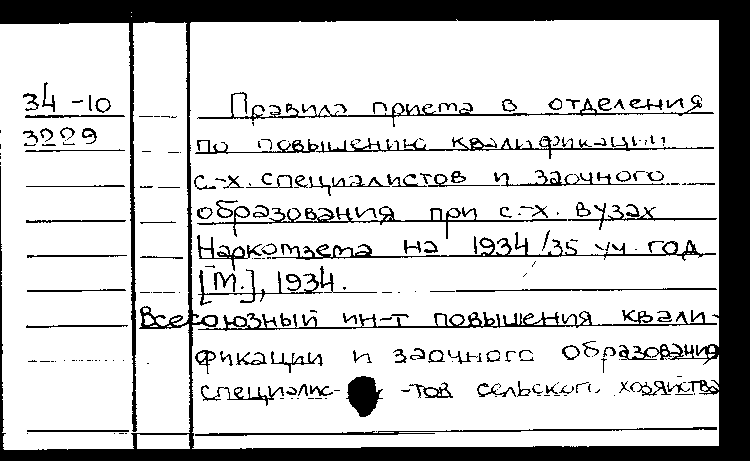 34-10
3229
Правила приема в отделения
по повышению квалификации
с.-х. специалистов и заочного
образования при с.-х. вузах
Наркомзема на 1934/35 уч. год
[М.], 1934.
Всесоюзный ин-т повышения квали-
фикации и заочного образования
специалис- -тов сельского хозяйства